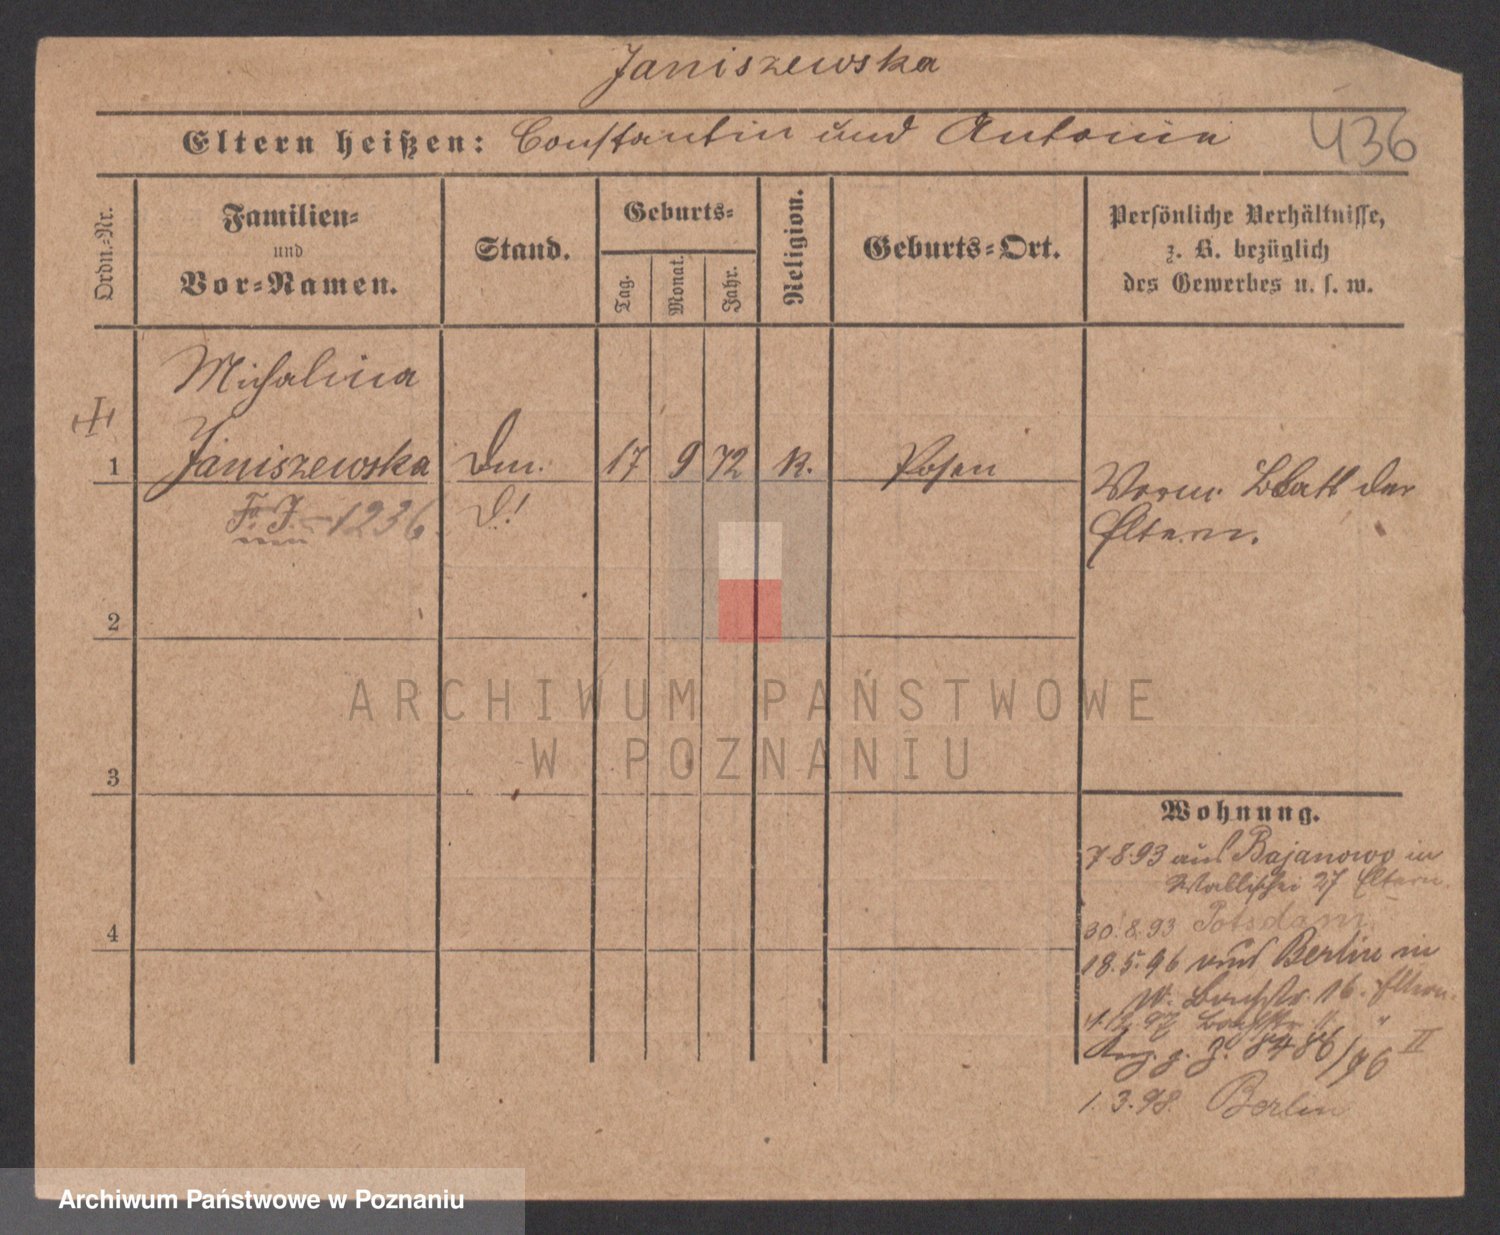 Janiszewska
Eltern heißen: Constantin und Antonie
436
Ordn.-Nr.
Familien-
und
Vor-Namen.
Stand.
Geburts-
Tag.
Monat.
Jahr.
Religion.
Geburts-Ort.
Persönliche Verhältnisse,
z. B. bezüglich
des Gewerbes u. s. w.
Michalina
1 Janiszewska Dm. 17 9 72 K. Posen
1236
D!
Vorm. Blatt der
Eltern.
2
ARCHIWUM PAŃSTWOWE
W POZNANIU
3
Wohnung.
7.8.93 aus Bajanowo in
Wallischei 27 Eltern
4
30.8.93 Potsdam
18.5.96 aus Berlin in
W. 16. Eltern
8486/96 II
1.3.98. Berlin
Archiwum Państwowe w Poznaniu